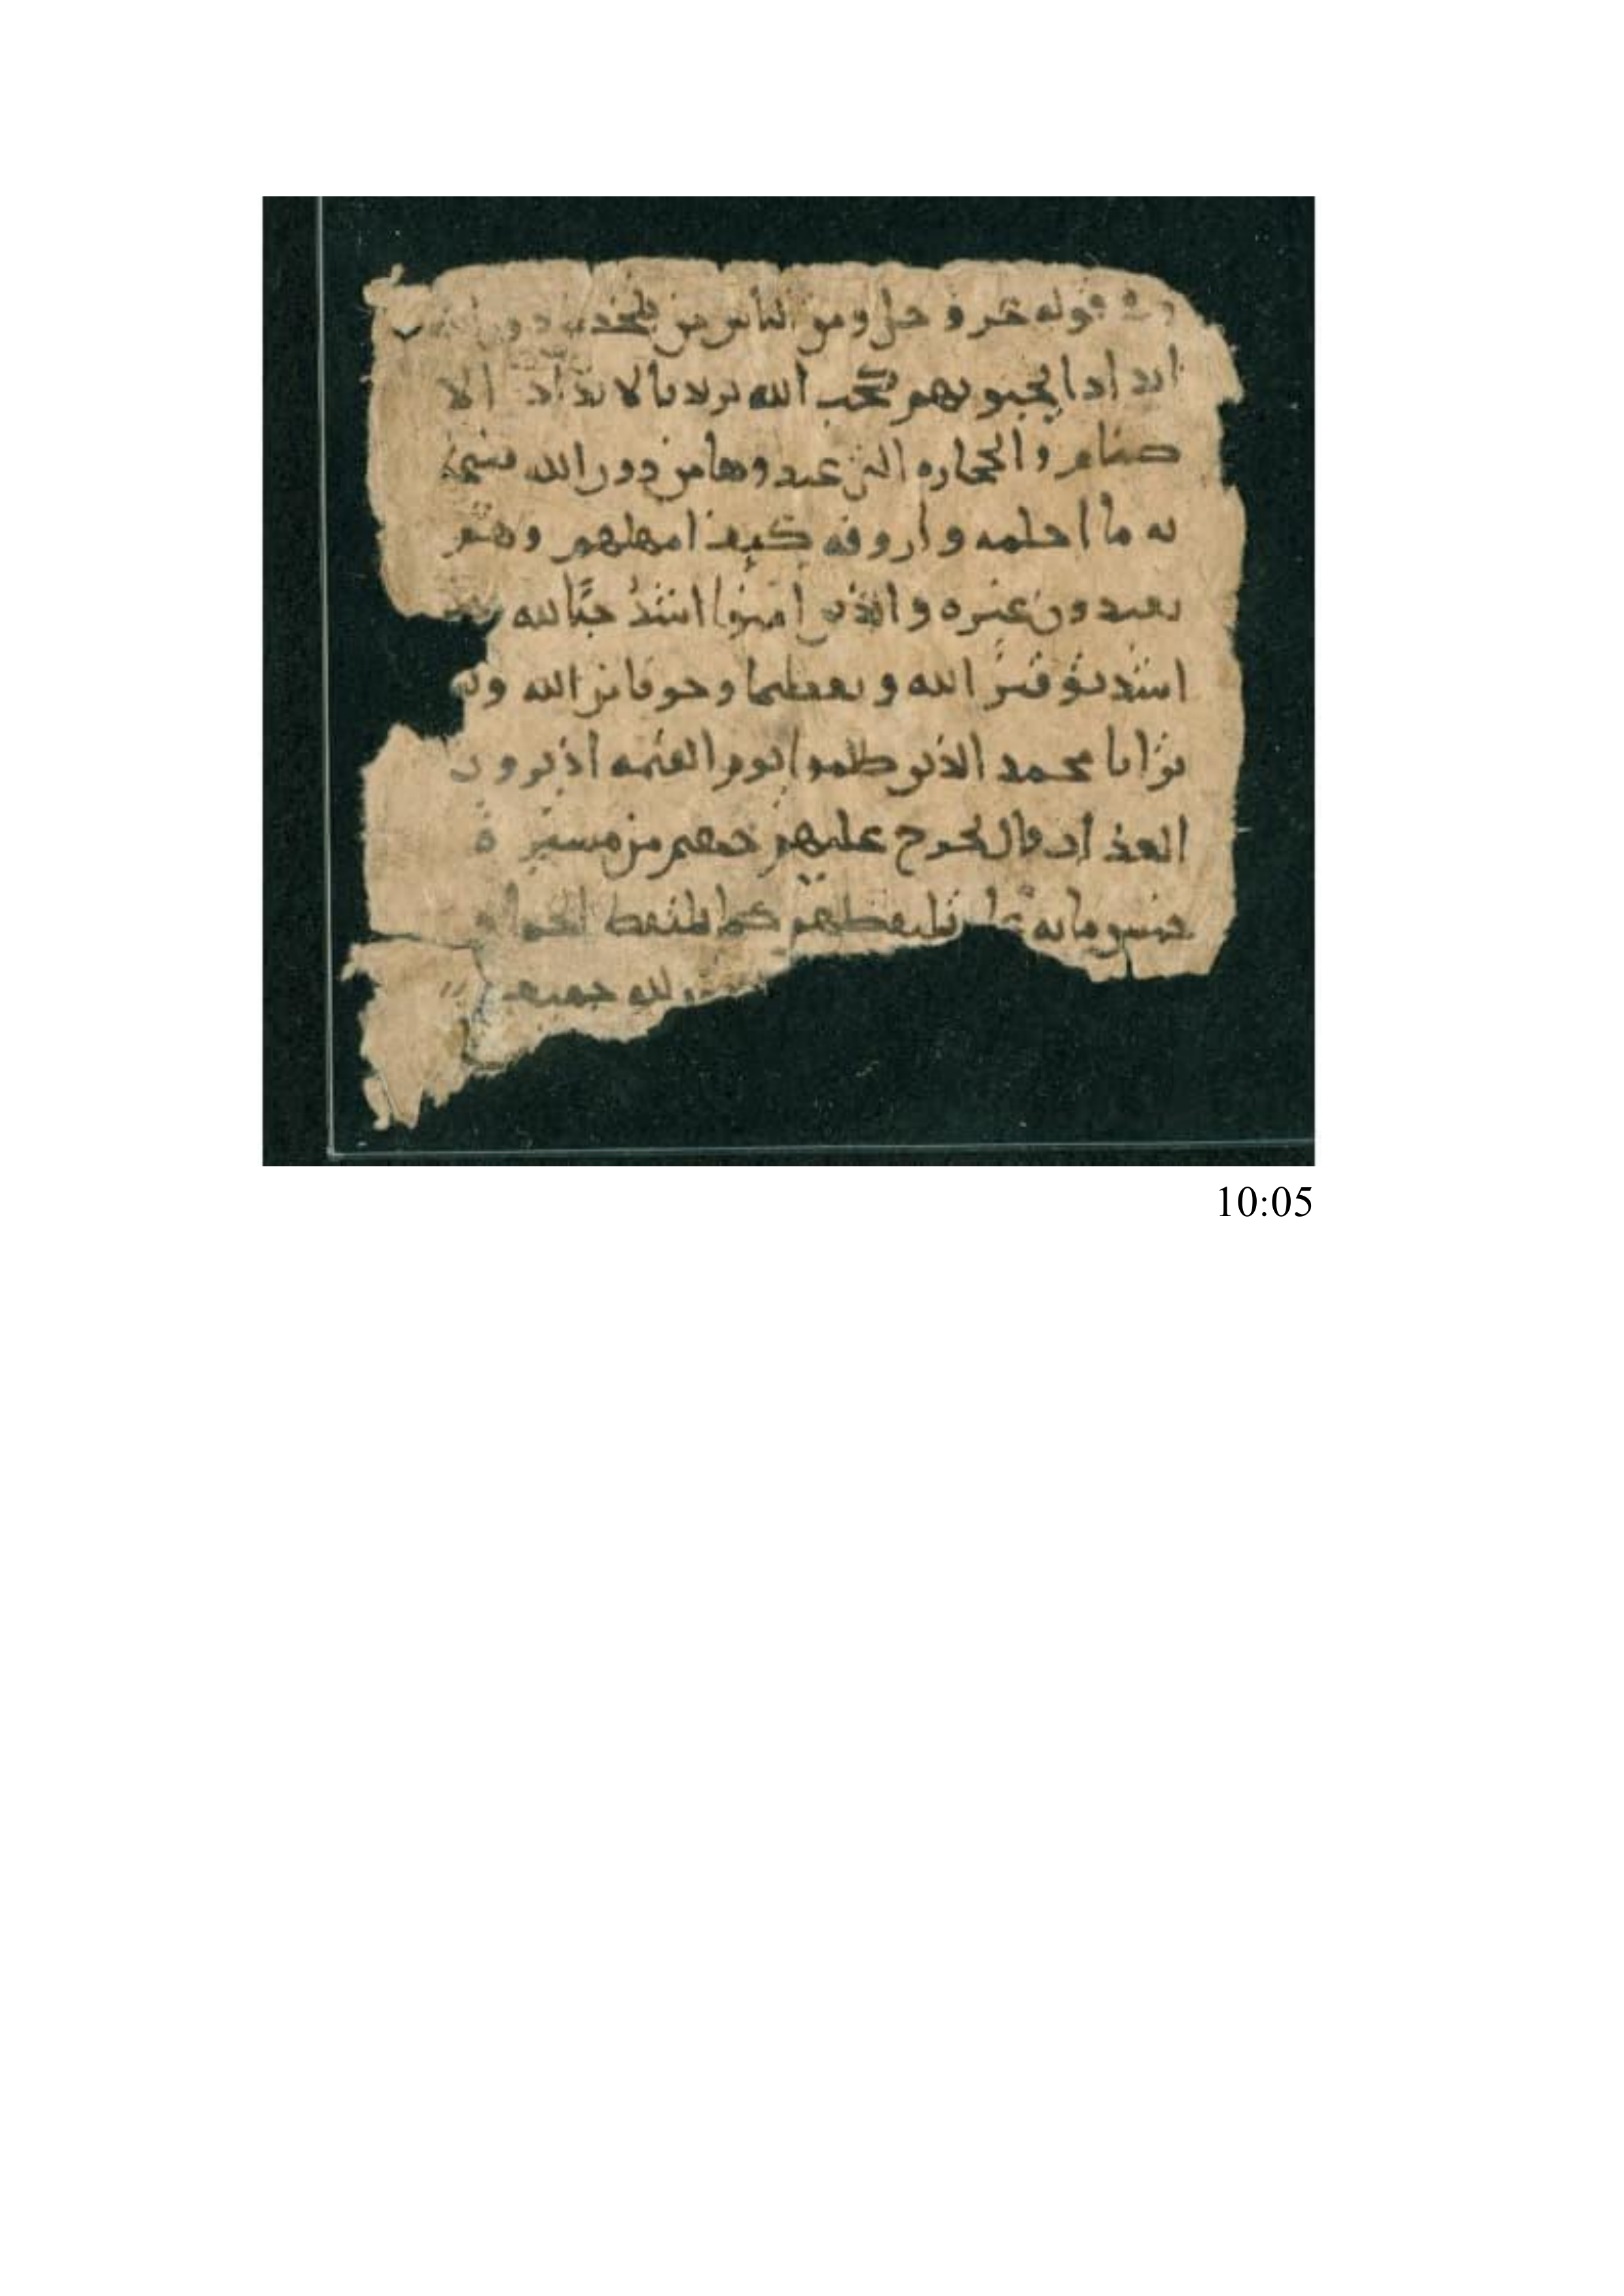 قوله عز و جل ومن الناس من يتخذ من دون الله
اندادا يحبونهم كحب الله يريد بالانداد الا
صنام والحجاره التي عبدوها من دون الله
به ما احلمه و اروفه كيف امهلهم وهم
يعبدون غيره والذين امنوا اشد حبا لله
اشد توقير الله و تعظيما وخوفا من الله ولو
ترا يا محمد الذين ظلموا يوم القيمه اذ يرون
العذاب قال تخرج عليهم جهنم من مسيرة
خمس مايه عام فتلتقطهم كما يلتقط الحمام
لله جميعا
10:05